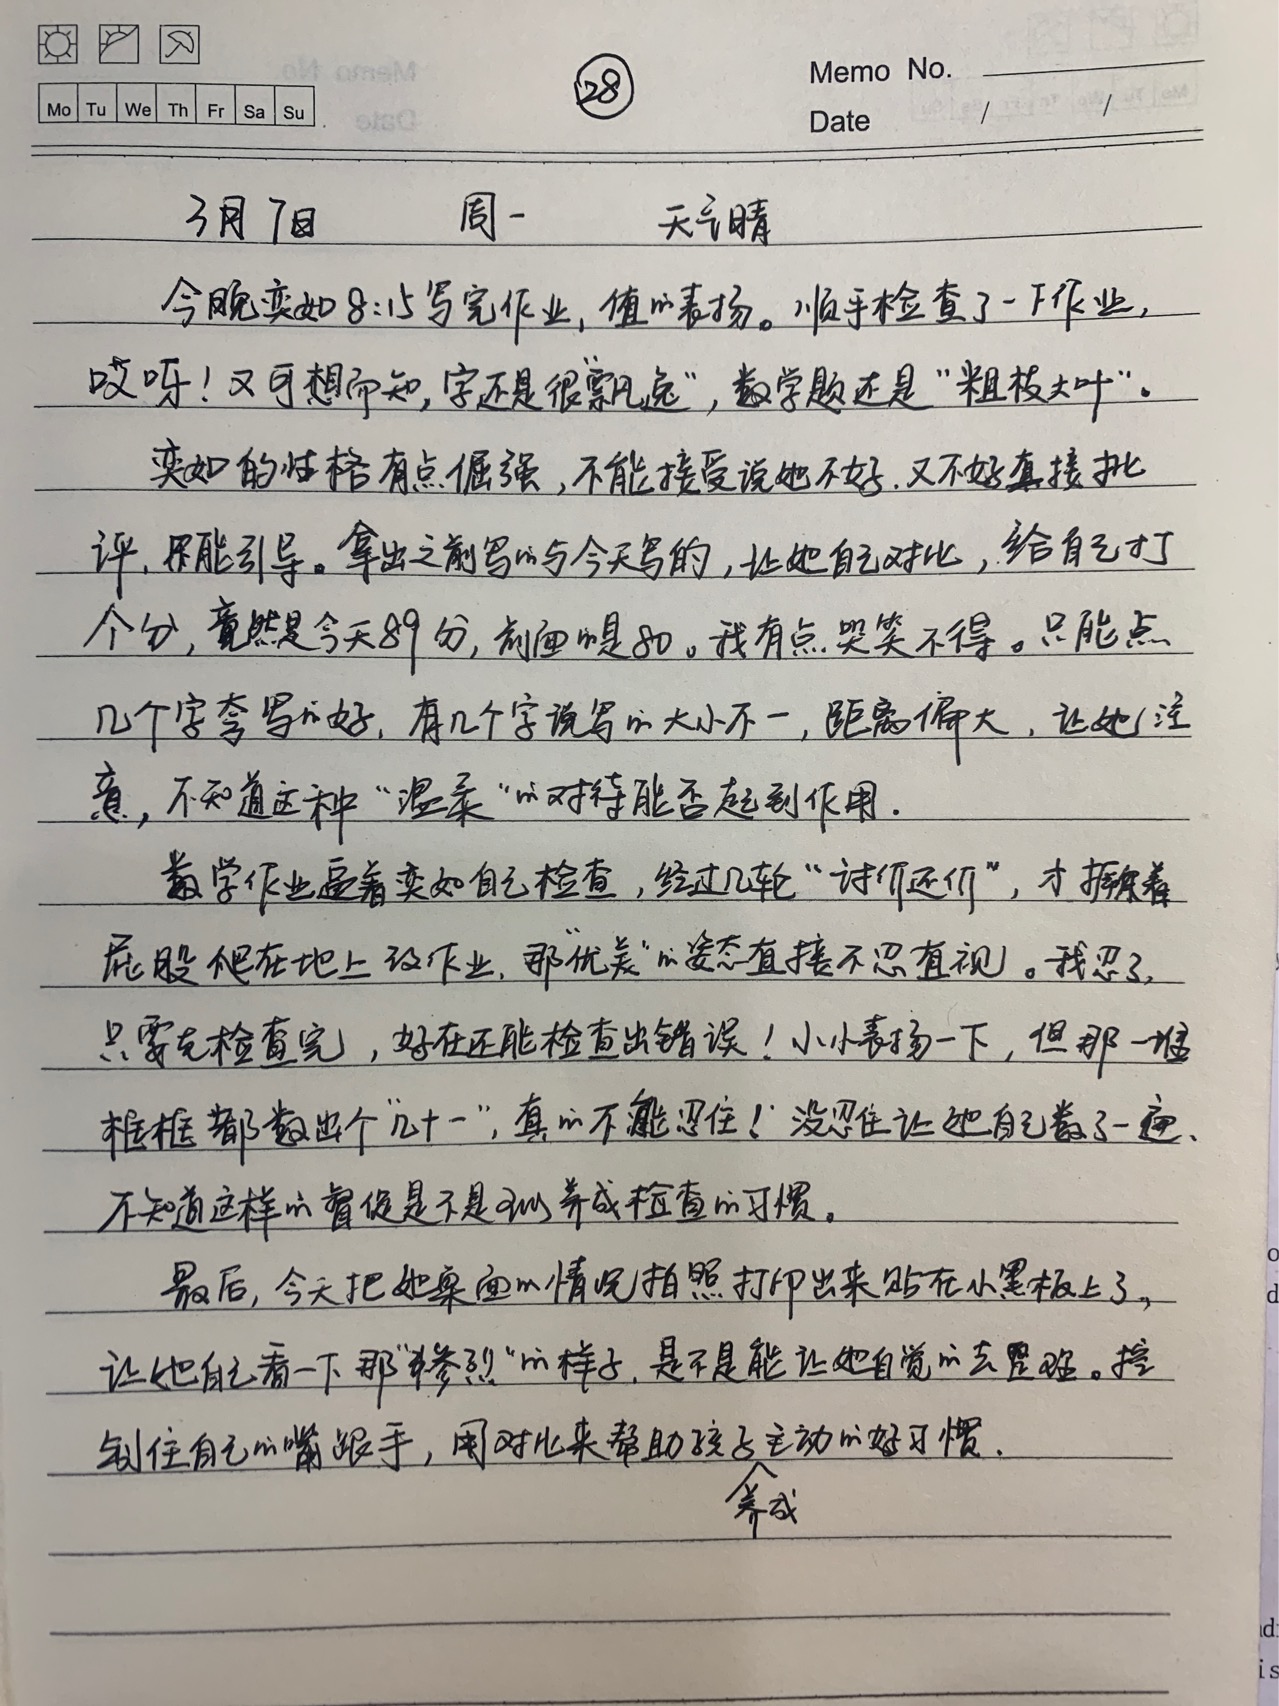 28
Memo No.
Mo Tu We Th Fr Sa Su
Date / /
3月7日 周一 天气晴
今晚奕如8:15写完作业,值的表扬。顺手检查了一下作业,
哎呀!又可想而知,字还是很"飘逸",数学题还是"粗枝大叶"。
奕如的性格有点倔强,不能接受说她不好.又不好直接批
评,只能引导。拿出之前写的与今天写的,让她自己对比,给自己打
个分,竟然是今天89分,前面的是80。我有点哭笑不得。只能点
几个字夸写的好,有几个字说写的大小不一,距离偏大,让她注
意,不知道这种"温柔"的对待能否起到作用.
数学作业逼着奕如自己检查,经过几轮"讨价还价",才撅着
屁股爬在地上改作业,那"优美"的姿态直接不忍直视。我忍了,
只要先检查完,好在还能检查出错误!小小表扬一下,但那一堆
框框都数出个"几十一",真的不能忍住!没忍住让她自己数了一遍、
不知道这样的督促是不是可以养成检查的习惯。
最后,今天把她桌面的情况拍照打印出来贴在小黑板上了,
让她自己看一下那"惨烈"的样子,是不是能让她自觉的去整理。控
制住自己的嘴跟手,用对比来帮助孩子主动的好习惯.
养成